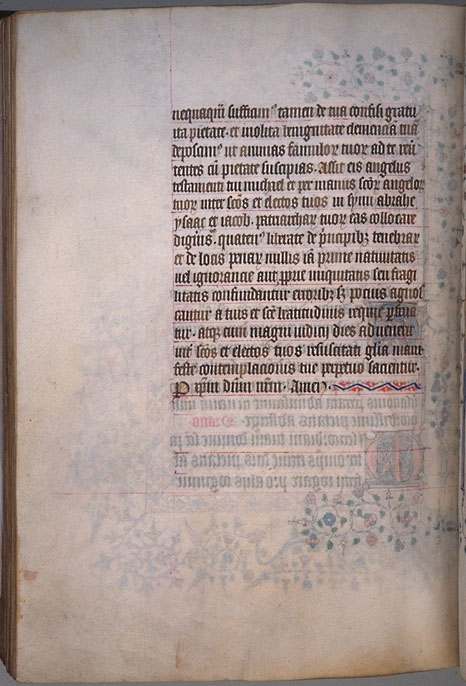 nequaq̄m sufficim⁹ tamen de tua confisi gratu
ita pietate · et inolita benignitate clemenciā tuā
deposcim⁹ ut animas famulor̄ tuor̄ ad te reu̾
tentes cū pietate suscipias. Assit eis angelus
testamenti tui michael et per manus scōr̄ angelor̄
tuor̄ inter scōs et electos tuos in synu abrahe
ysaac et iacob. patriarchar̄ tuor̄ eas collocare
digneris. quaten⁹ liberate de pͥncipibꝫ tenebrar̄
et de locis penar̄ nullis iā prime natiuitatis
uel ignorancie aut ꝓprie iniquitatis seu fragi
litatis confundantur erroribꝫ sꝫ pocius agnos
cantur a tuis et scē beatitudinis requie ꝑfruā
tur. atqꝫ cum magni iudicij dies aduenerit
int̾ scōs et electos tuos resuscitati gl̄ia mani
feste contemplacionis tue perpetuo sacientur.
P xp̄m dn̄m nr̄m. Amen.